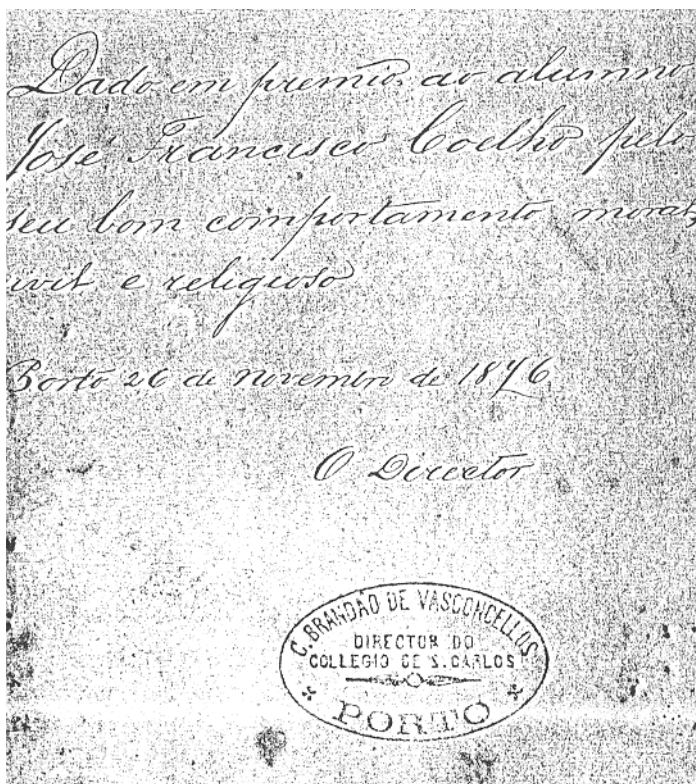 Dado em premio, ao alumno
José Francisco Coelho pelo
seu bom comportamento moral,
ivil e religioso
Porto 26 de Novembro de 1876
O Director
C. BRANDÃO DE VASCONCELLOS
DIRECTOR DO
COLLEGIO DE S. CARLOS
PORTO